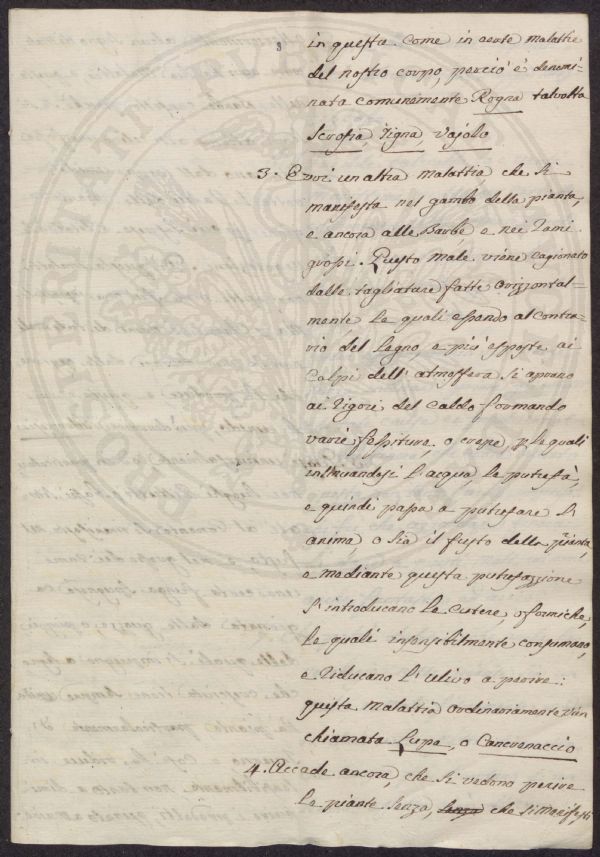 in questa. Come in certe malattie
del nostro corpo, perciò è denomi-
nata comunemente Rogna talvolta
Scrofia, Tigna, Vajolo
3. Evvi un altra malattia, che si
manifesta nel gambo della pianta,
e ancora alle Barbe, e nei rami
grossi. Questo male viene cagionato
dalle tagliature fatte orizzontal-
mente, le quali essendo al contra-
rio del Legno, e più esposte ai
Colpi dell'atmosfera si aprono
ai rigori del Caldo formando
varie fessiture, o crepe, p. le quali
insinuandosi l'acqua, le putrefà,
e quindi passa a putrefare l'
anima, o sia il fusto della pianta,
e mediante questa putrefazzione
s'introducano le Cutere, o formiche,
le quali insensibilmente consumano,
e riducano l'ulivo a perire:
questa malattia ordinariamente vien
chiamata Lupa, o Cancrenaccio
4. Accade ancora, che si vedono perire
le piante senza, senza che si manifesti